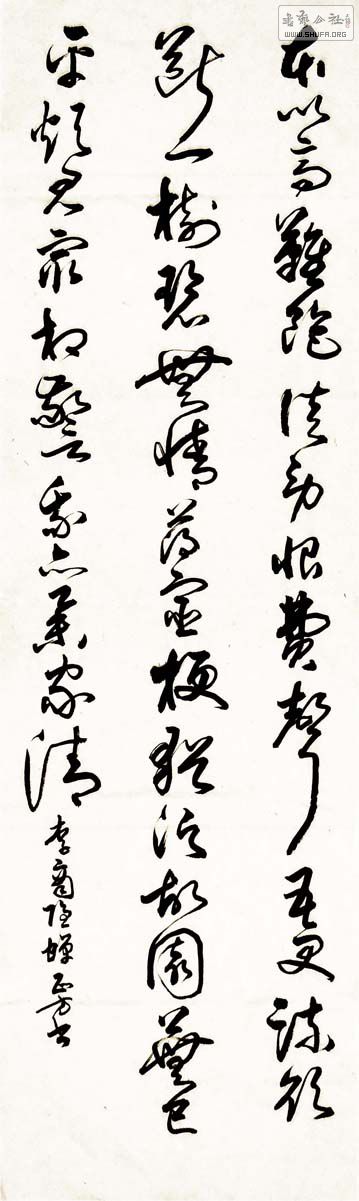 書藝公社
WWW.SHUFA.ORG
本以高難飽徒勞恨費聲五更疏欲
斷一樹碧無情薄宦梗猶泛故園蕪已
平煩君最相警我亦舉家清
李商隱蟬 正方书